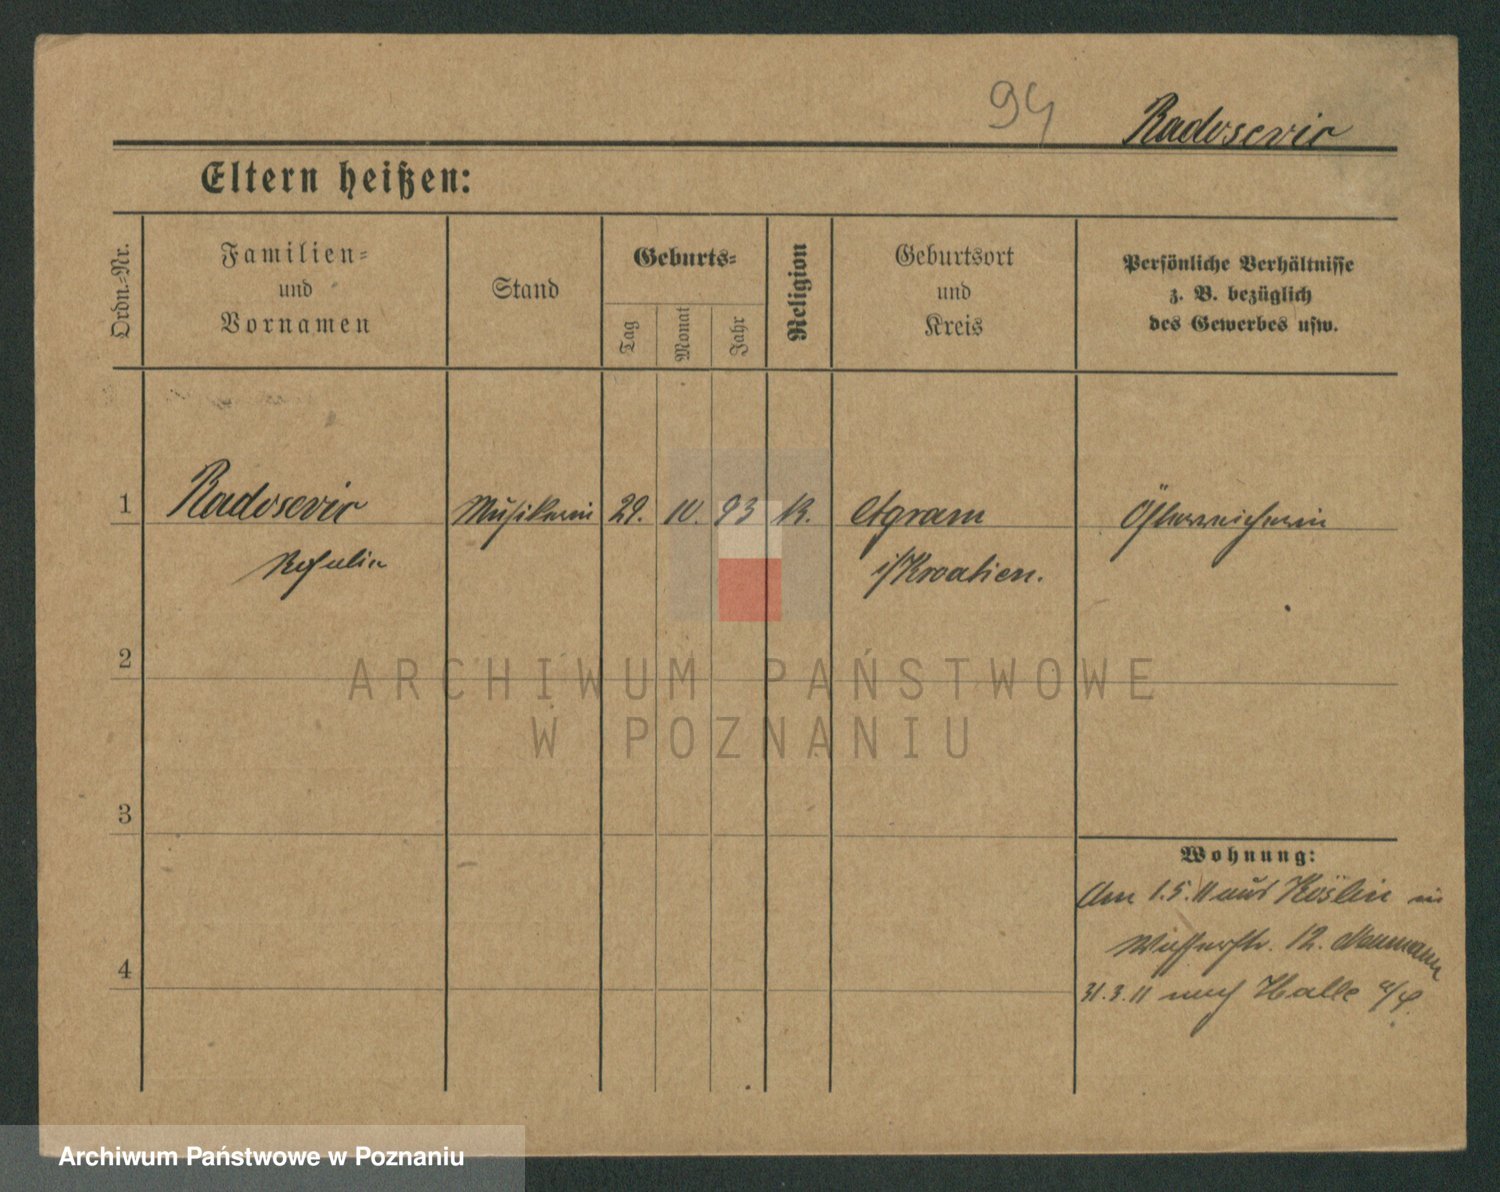 94
Radosevic
Eltern heißen:
Ordn.-Nr.
Familien-
und
Vornamen
Stand
Geburts-
Tag
Monat
Jahr
Religion
Geburtsort
und
Kreis
Persönliche Verhältnisse
z. B. bezüglich
des Gewerbes usw.
1
Radosevic
Musikerin
29.
10.
93
K.
Agram
Österreicherin
Rosalie
i/Kroatien.
2
3
4
Wohnung:
Am 1.5.11 aus Köslin in
Wasserstr. 12. Naumann
31.3.11 nach Halle a/S.
ARCHIWUM PAŃSTWOWE
W POZNANIU
Archiwum Państwowe w Poznaniu